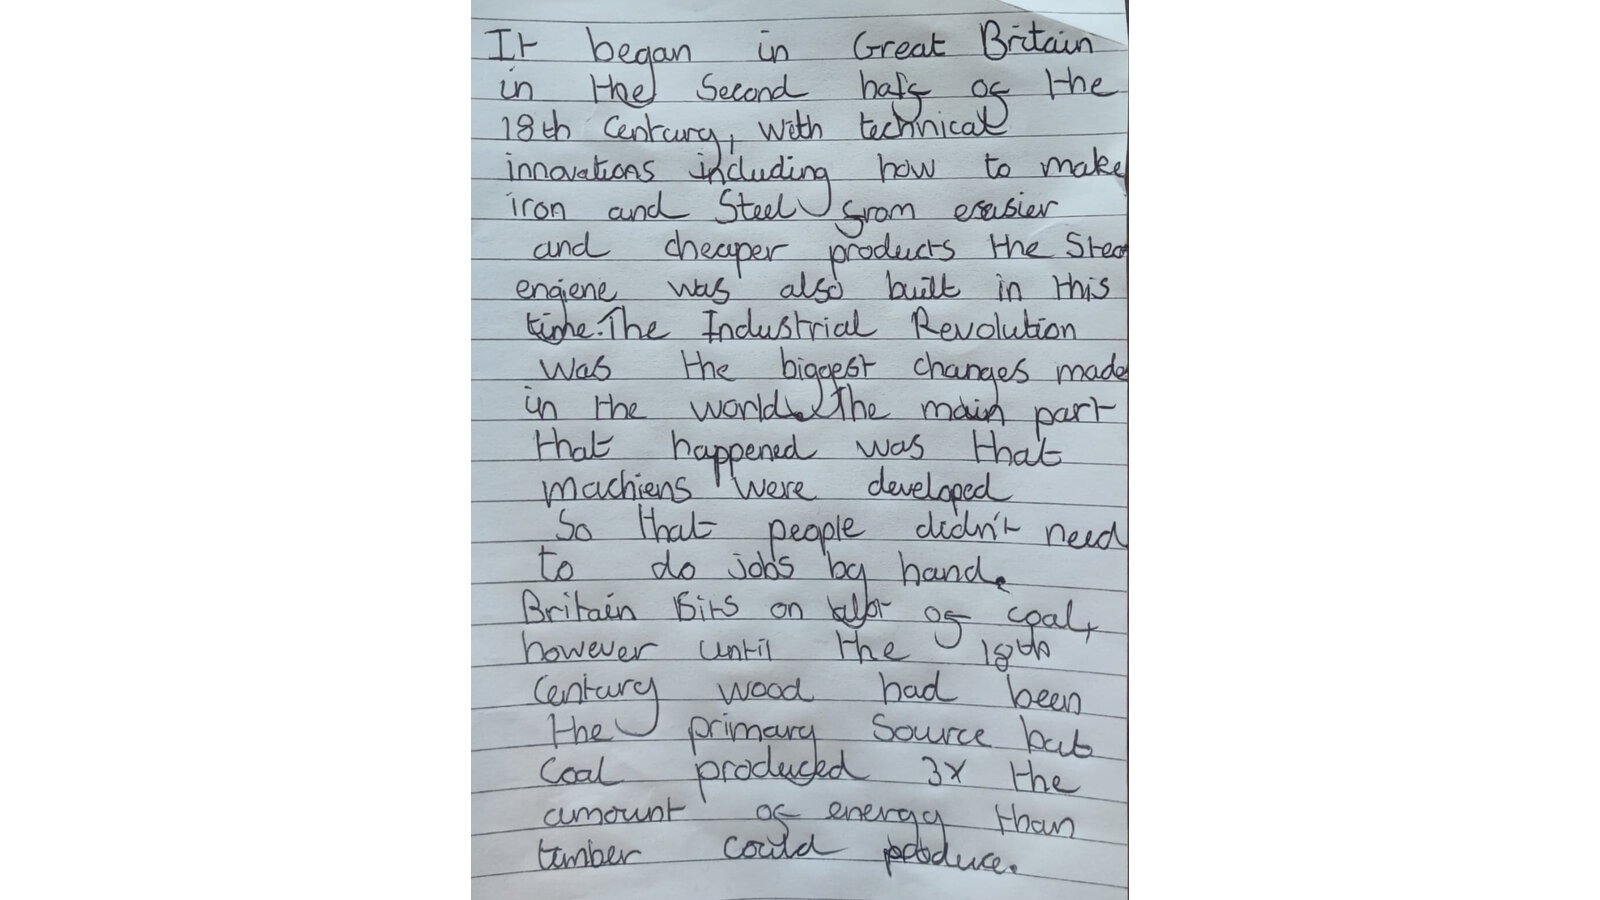 It began in Great Britain
in the Second half of the
18th Century, with technical
innovations including how to make
iron and Steel from easier
and cheaper products the Stea
engiene was also built in this
time. The Industrial Revolution
was the biggest changes made
in the world. The main part
that happened was that
machiens were developed
So that people didn't need
to do jobs by hand.
Britain sits on alot of coal,
however until the 18th
Century wood had been
the primary Source but
Coal produced 3x the
amount of energy than
timber could produce.